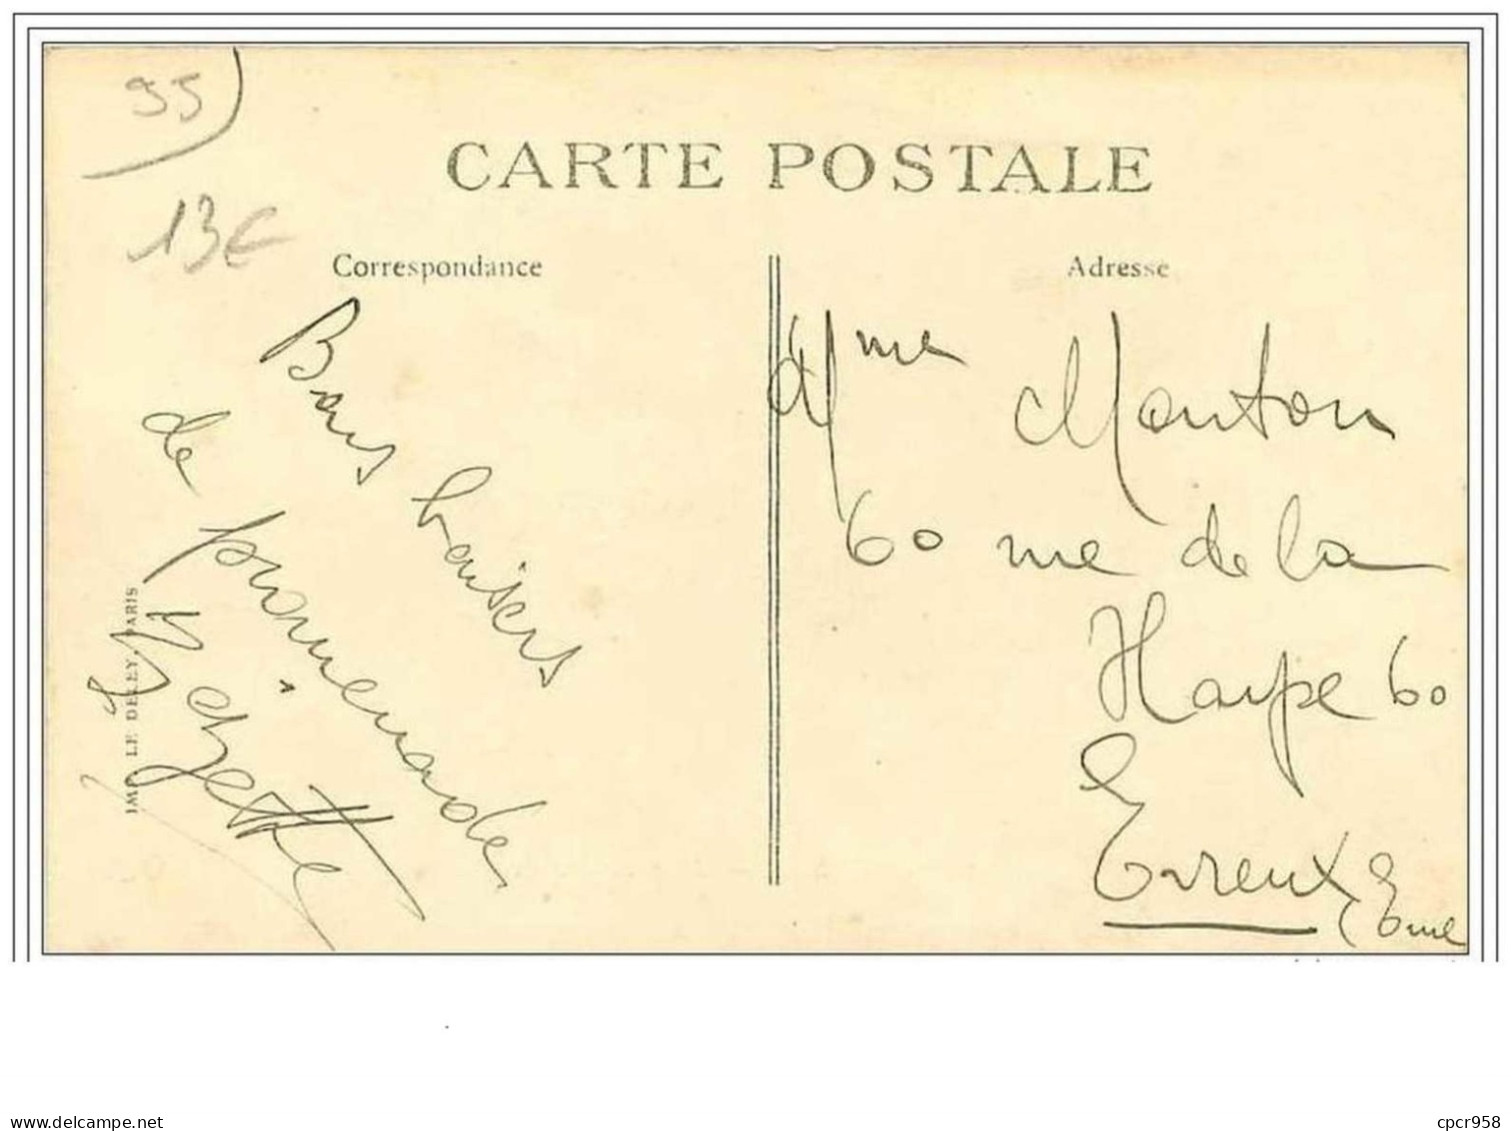 95
13€
CARTE POSTALE
Correspondance
Bons baisers
de promenade
Zézette
IMP. LE DELEY, PARIS
Adresse
Mme Mouton
60 rue de la
Harpe 60
Evreux
Eure
delcampe.net
cpcr958